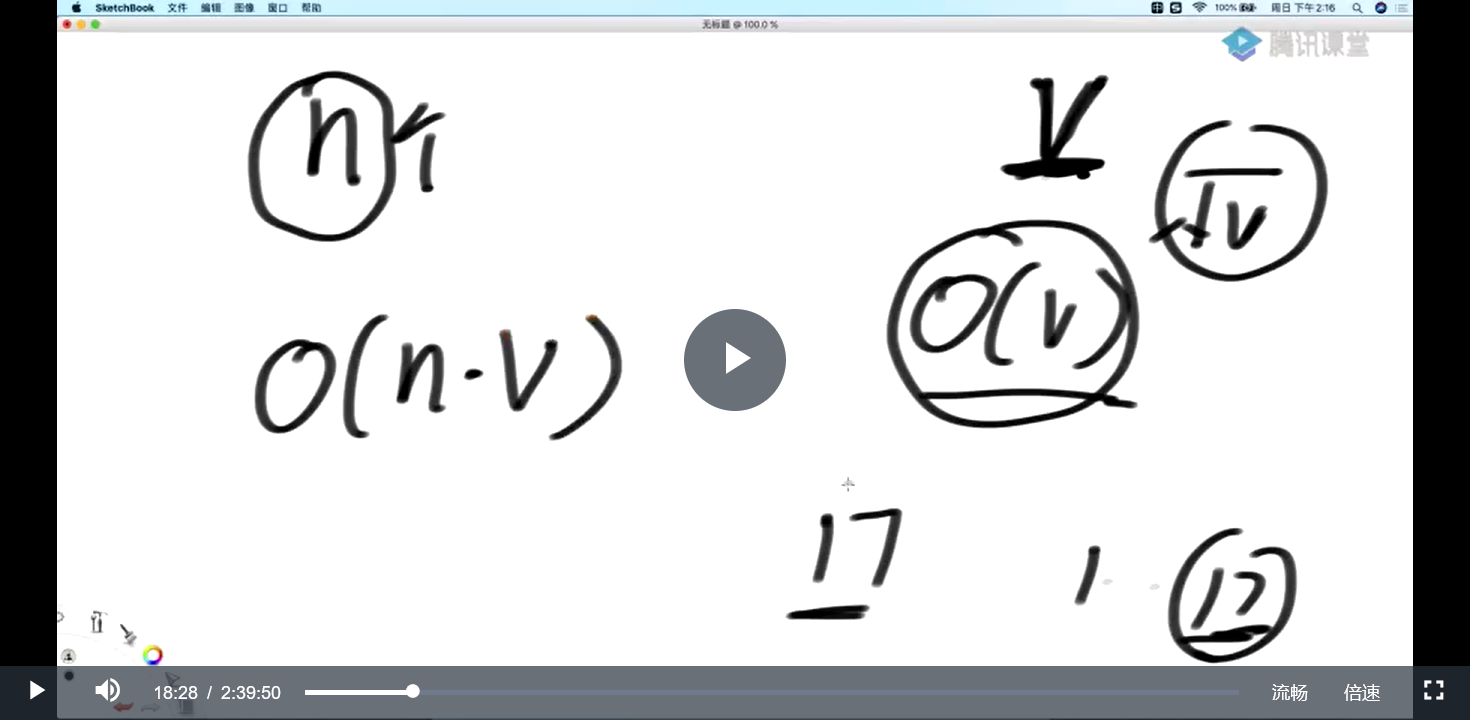 SketchBook 文件 编辑 图像 窗口 帮助 100% 周日 下午2:16
无标题 @ 100.0 %
腾讯课堂
n 1
V
√v
O(n·V)
O(v)
17
1 17
18:28 / 2:39:50 流畅 倍速